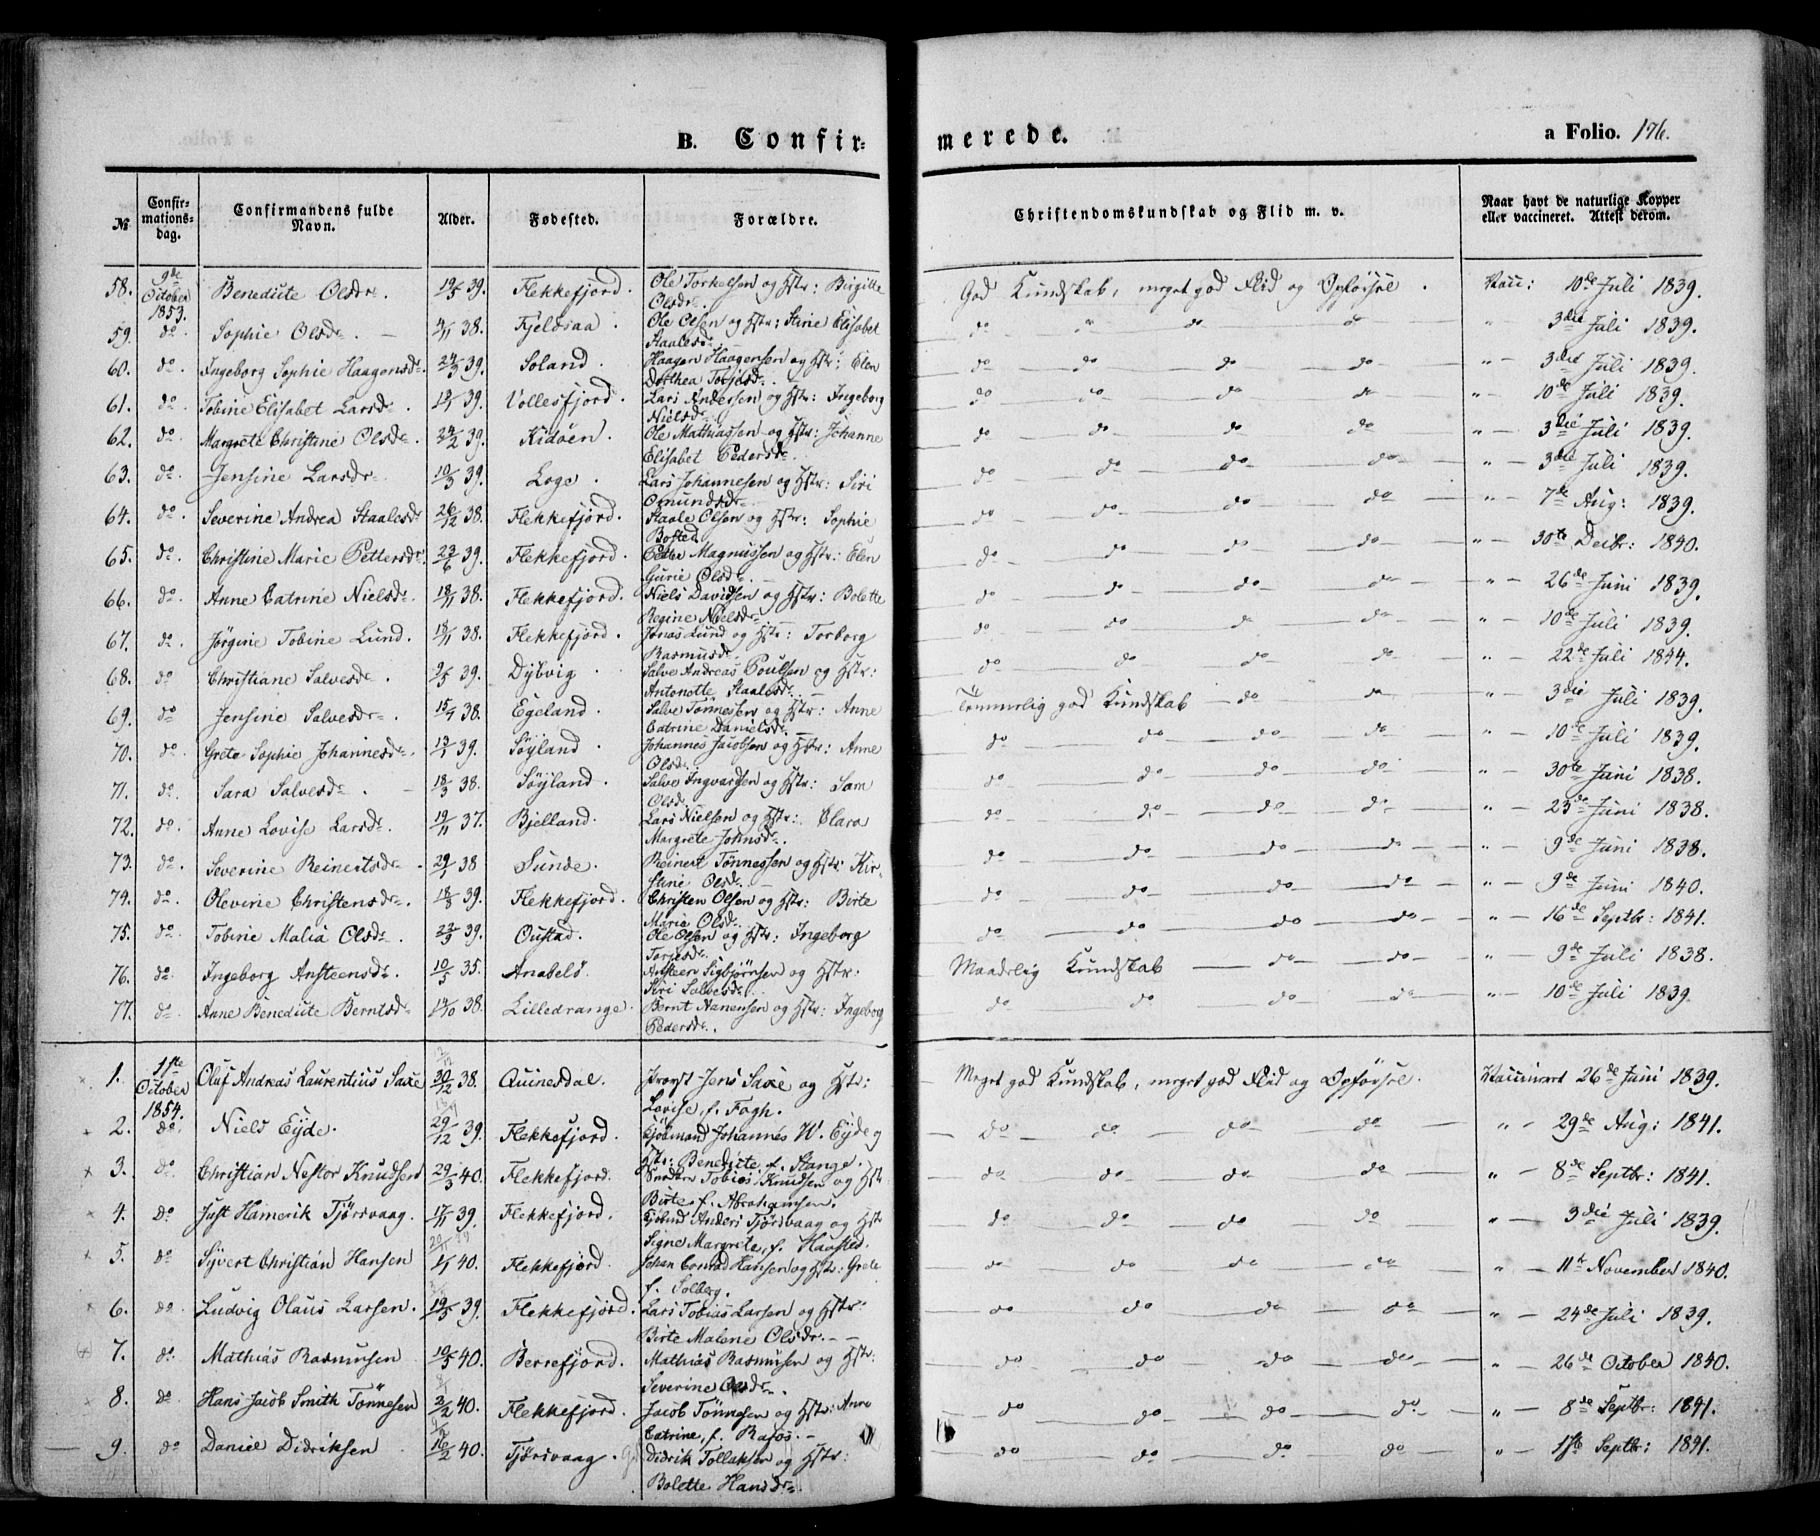 B. Confirmerede.
a Folio. 176.
№ | Confirmationsdag. | Confirmandens fulde Navn. | Alder. | Fødested. | Forældre. | Christendomskundskab og Flid m. v. | Naar havt de naturlige Kopper eller vaccineret. Attest derom.
58. | 9de October 1853. | Benedicte Olsdr. | 39. | Flekkefjord. | Ole Torkelsen og Hstr: Birgitte Olsdr. | God Kundskab, meget god Flid og Opførsel. | Vacc: 10de Juli 1839.
59. | do. | Sophie Olsdr. | 38. | Fjeldsaa. | Ole Olsen og Hstr: Stine Elisabet Staalesdr. | do do do do | " 3die Juli 1839.
60. | do. | Ingeborg Sophie Haagensdr. | 24/3 39. | Soland. | Haagen Haagensen og Hstr: Elen Dorthea Torjesdr. | do do do do | " 3die Juli 1839.
61. | do. | Tobine Elisabet Larsdr. | 39. | Vollesfjord. | Lars Andersen og Hstr: Ingeborg Nielsdr. | do do do do | " 10de Juli 1839.
62. | do. | Margrete Christine Olsdr. | 24/2 39. | Kidøen. | Ole Mathiassen og Hstr: Johanne Elisabet Pedersdr. | do do do do | " 3die Juli 1839.
63. | do. | Jensine Larsdr. | 10/3 39. | Loge. | Lars Johannesen og Hstr: Siri Omundsdr. | do do do do | " 3die Juli 1839.
64. | do. | Severine Andrea Staalesdr | 26/12 38. | Flekkefjord. | Staale Olsen og Hstr: Sophie Bosted | do do do do | " 7de Aug: 1839.
65. | do. | Christine Marie Pettersdr. | 23/6 39. | Flekkefjord. | Petter Magnussen og Hstr: Elen Gurie Olsdr. | do do do do | " 30te Decbr: 1840.
66. | do. | Anne Catrine Nielsdr. | 18/11 38. | Flekkefjord. | Niels Davidsen og Hstr: Bolette Regine Nielsdr. | do do do do | " 26de Juni 1839.
67. | do. | Jørgine Tobine Lund. | 18/11 38. | Flekkefjord. | Jonas Lund og Hstr: Torborg Rasmusdr. | do do do do | " 10de Juli 1839.
68. | do | Christiane Salvesdr. | 9/5 39. | Dybvig. | Salve Andreas Poulsen og Hstr: Antonette Staalesdr. | do do do do | " 22de Juli 1844.
69. | do | Jensine Salvesdr. | 38. | Egeland. | Salve Tønnessen og Hstr: Anne Catrine Danielsdr. | Temmelig god Kundskab do do | " 3die Juli 1839.
70. | do. | Grete Sophie Johannesdr | 39. | Søyland. | Johannes Jacobsen og Hstr: Anne Olsdr. | do do do do | " 10de Juli 1839.
71. | do. | Sara Salvesdr. | 18/3 38. | Søyland. | Salve Ingvardsen og Hstr: Sara Olsdr. | do do do do | " 30te Juni 1838.
72. | do. | Anne Lovise Larsdr. | 19/11 37. | Bjelland. | Lars Nielsen og Hstr: Clara Margrete Johnsdr. | do do do do | " 23de Juni 1838.
73. | do. | Severine Reinertsdr. | 29/1 38 | Sunde. | Reinert Tønnessen og Hstr: Kirstine Olsdr. | do do do do | " 9de Juni 1838.
74. | do. | Olevine Christensdr. | 39. | Flekkefjord. | Christen Olsen og Hstr: Birte Marie Olsdr. | do do do do | " 9de Juni 1840.
75. | do. | Tobine Malia Olsdr. | 39. | Oustad. | Ole Olsen og Hstr: Ingeborg Torjesdr. | do do do do | " 16de Septbr: 1841.
76. | do | Ingeborg Ansteensdr. | 10/5 35. | Anabelø. | Ansteen Sigbjørnsen og Hstr: Siri Salvesdr. | Maadelig Kundskab do do | " 9de Juli 1838.
77. | do | Anne Benedicte Berntsdr | 38. | Lilledrange. | Bernt Aanensen og Hstr: Ingeborg Pedersdr. | do do do do | " 10de Juli 1839.
1. | 1ste October 1854. | Oluf Andreas Laurentius Saxe | 30/12 38. | Quinesdal. | Provst Jens Saxe og Hstr: Lovise, f. Fagh. | Meget god Kundskab, meget god Flid og Opførsel. | Vaccineret 26de Juni 1839.
2. | do. | Niels Eyde. | 29/12 39. | Flekkefjord. | Kjøbmand Johannes W. Eyde og Hstr: Benedicte f. Stange. | do do do do | " 29de Aug: 1841.
3. | do | Christian Nestor Knudsen | 29/3 40. | Flekkefjord. | Tobias Knudsen og Hstr Birte f. Abrahamsen. | do do do do | " 8de Septbr: 1841.
4. | do | Just Hamerik Tjørsvaag. | 17/11 39. | Flekkefjord. | Anders Tjørsvaag og Hstr Signe Margrete, f. Haasted. | do do do do | " 3die Juli 1839.
5. | do. | Syvert Christian Hansen | 40. | Flekkefjord. | Johan Conrad Hansen og Hstr: Grete f. Solberg. | do do do do | " 11te November 1840.
6. | do. | Ludvig Olaus Larsen. | 19/5 39. | Flekkefjord. | Lars Tobias Larsen og Hstr: Birte Malene Olsdr. | do do do do | " 24de Juli 1839.
7. | do. | Mathias Rasmusen | 19/5 40. | Berrefjord. | Mathias Rasmusen og Hstr: Severine Olsdr. | do do do do | " 26de October 1840.
8. | do | Hans Jacob Smith Tønnesen | 3/2 40. | Flekkefjord. | Jacob Tønnesen og Hstr: Anne Catrine, f. Rafos. | do do do do | " 8de Septbr: 1841.
9. | do | Daniel Didriksen | 16/2 40. | Tjørsvaag. | Didrik Tollaksen og Hstr: Bolette Hansdr. | do do do do | " 1ste Septbr: 1841.